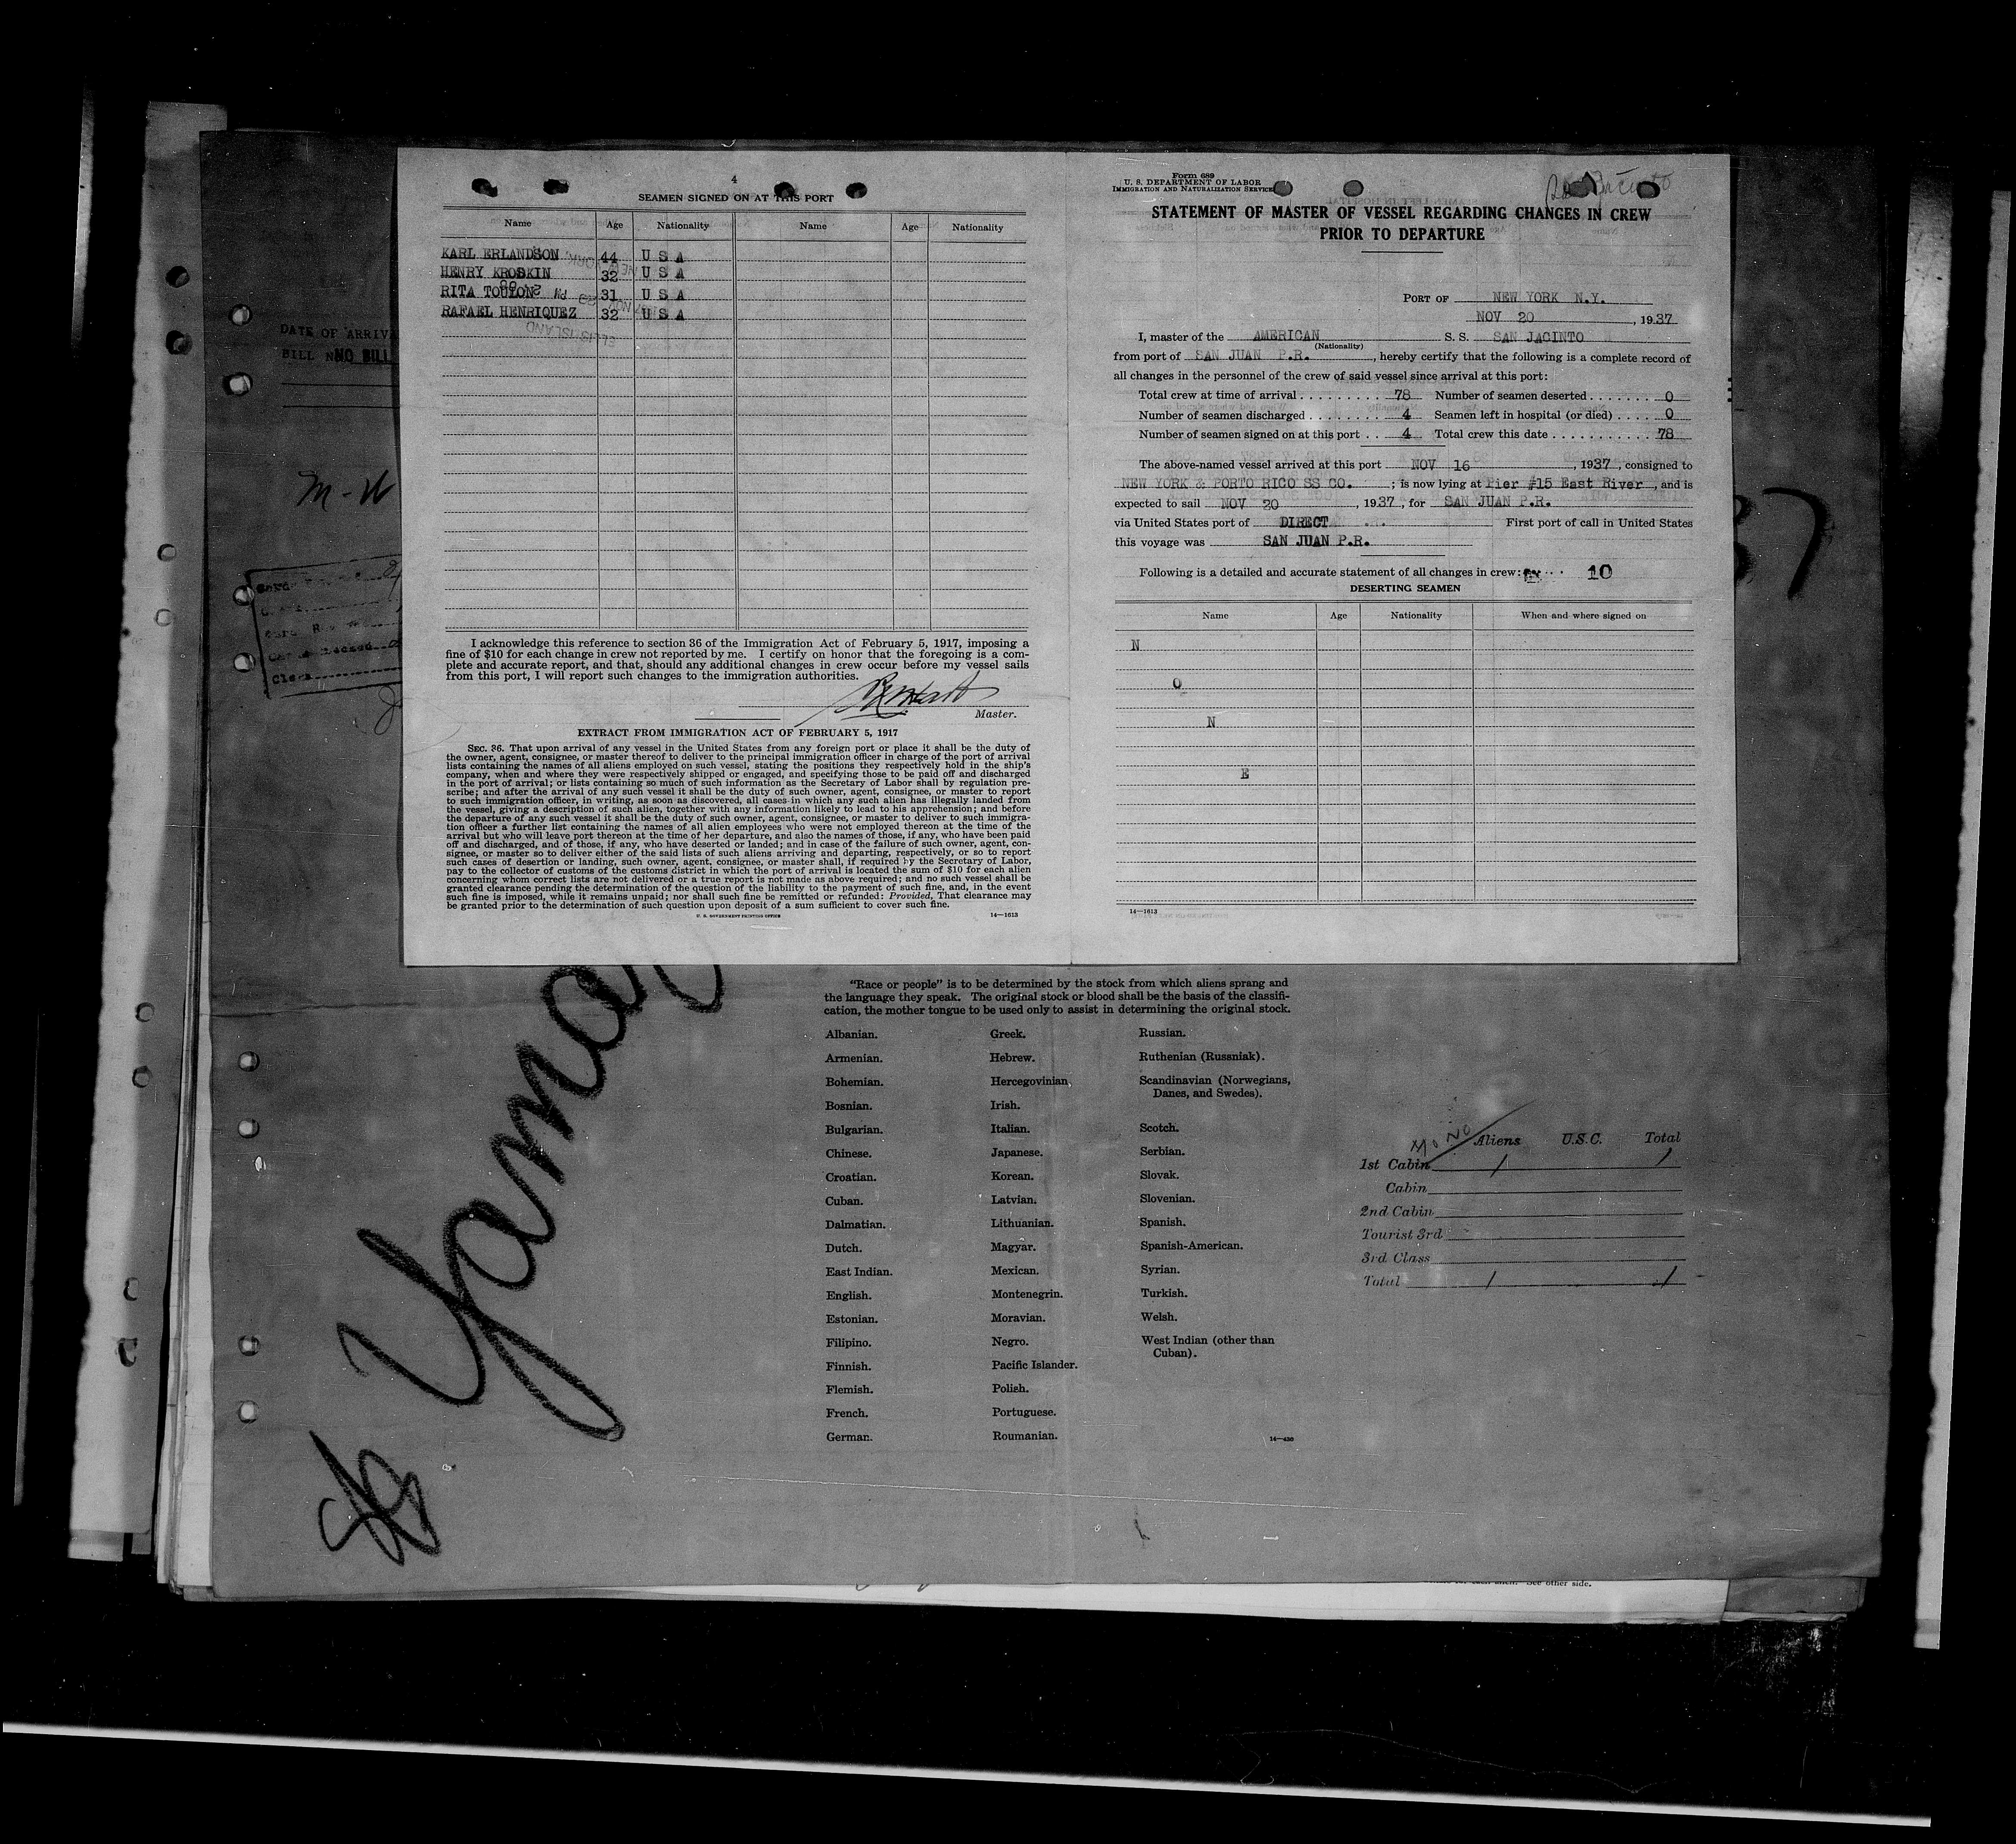 4
SEAMEN SIGNED ON AT THIS PORT
Name Age Nationality Name Age Nationality
KARL ERLANDSON 44 U S A
HENRY KROSKIN 32 U S A
RITA TOULON 31 U S A
RAFAEL HENRIQUEZ 32 U S A
ELLIS ISLAND
I acknowledge this reference to section 36 of the Immigration Act of February 5, 1917, imposing a
fine of $10 for each change in crew not reported by me. I certify on honor that the foregoing is a com-
plete and accurate report, and that, should any additional changes in crew occur before my vessel sails
from this port, I will report such changes to the immigration authorities.
Master.
EXTRACT FROM IMMIGRATION ACT OF FEBRUARY 5, 1917
SEC. 36. That upon arrival of any vessel in the United States from any foreign port or place it shall be the duty of
the owner, agent, consignee, or master thereof to deliver to the principal immigration officer in charge of the port of arrival
lists containing the names of all aliens employed on such vessel, stating the positions they respectively hold in the ship's
company, when and where they were respectively shipped or engaged, and specifying those to be paid off and discharged
in the port of arrival; or lists containing so much of such information as the Secretary of Labor shall by regulation pre-
scribe; and after the arrival of any such vessel it shall be the duty of such owner, agent, consignee, or master to report
to such immigration officer, in writing, as soon as discovered, all cases in which any such alien has illegally landed from
the vessel, giving a description of such alien, together with any information likely to lead to his apprehension; and before
the departure of any such vessel it shall be the duty of such owner, agent, consignee, or master to deliver to such immigra-
tion officer a further list containing the names of all alien employees who were not employed thereon at the time of the
arrival but who will leave port thereon at the time of her departure, and also the names of those, if any, who have been paid
off and discharged, and of those, if any, who have deserted or landed; and in case of the failure of such owner, agent, con-
signee, or master so to deliver either of the said lists of such aliens arriving and departing, respectively, or so to report
such cases of desertion or landing, such owner, agent, consignee, or master shall, if required by the Secretary of Labor,
pay to the collector of customs of the customs district in which the port of arrival is located the sum of $10 for each alien
concerning whom correct lists are not delivered or a true report is not made as above required; and no such vessel shall be
granted clearance pending the determination of the question of the liability to the payment of such fine, and, in the event
such fine is imposed, while it remains unpaid; nor shall such fine be remitted or refunded: Provided, That clearance may
be granted prior to the determination of such question upon deposit of a sum sufficient to cover such fine.
U. S. GOVERNMENT PRINTING OFFICE 14—1613
Form 689
U. S. DEPARTMENT OF LABOR
IMMIGRATION AND NATURALIZATION SERVICE
STATEMENT OF MASTER OF VESSEL REGARDING CHANGES IN CREW
PRIOR TO DEPARTURE
PORT OF NEW YORK N.Y.
NOV 20, 1937
I, master of the AMERICAN S. S. SAN JACINTO
(Nationality)
from port of SAN JUAN P.R., hereby certify that the following is a complete record of
all changes in the personnel of the crew of said vessel since arrival at this port:
Total crew at time of arrival . . . . . . . . . 78 Number of seamen deserted . . . . . . . 0
Number of seamen discharged . . . . . . . . 4 Seamen left in hospital (or died) . . . . . 0
Number of seamen signed on at this port . . 4 Total crew this date . . . . . . . . . . . 78
The above-named vessel arrived at this port NOV 16, 1937, consigned to
NEW YORK & PORTO RICO SS CO. ; is now lying at Pier #15 East River, and is
expected to sail NOV 20, 1937, for SAN JUAN P.R.
via United States port of DIRECT First port of call in United States
this voyage was SAN JUAN P.R.
Following is a detailed and accurate statement of all changes in crew: 10
DESERTING SEAMEN
Name Age Nationality When and where signed on
N
O
N
E
14—1613
DATE OF ARRIVA
BILL NO. NO BILL
37
"Race or people" is to be determined by the stock from which aliens sprang and
the language they speak. The original stock or blood shall be the basis of the classifi-
cation, the mother tongue to be used only to assist in determining the original stock.
Albanian. Greek. Russian.
Armenian. Hebrew. Ruthenian (Russniak).
Bohemian. Hercegovinian. Scandinavian (Norwegians,
Danes, and Swedes).
Bosnian. Irish.
Bulgarian. Italian. Scotch.
Chinese. Japanese. Serbian.
Croatian. Korean. Slovak.
Cuban. Latvian. Slovenian.
Dalmatian. Lithuanian. Spanish.
Dutch. Magyar. Spanish-American.
East Indian. Mexican. Syrian.
English. Montenegrin. Turkish.
Estonian. Moravian. Welsh.
Filipino. Negro. West Indian (other than
Cuban).
Finnish. Pacific Islander.
Flemish. Polish.
French. Portuguese.
German. Roumanian.
14—430
Aliens U.S.C. Total
1st Cabin 1 1
Cabin
2nd Cabin
Tourist 3rd
3rd Class
Total 1 1
See other side.